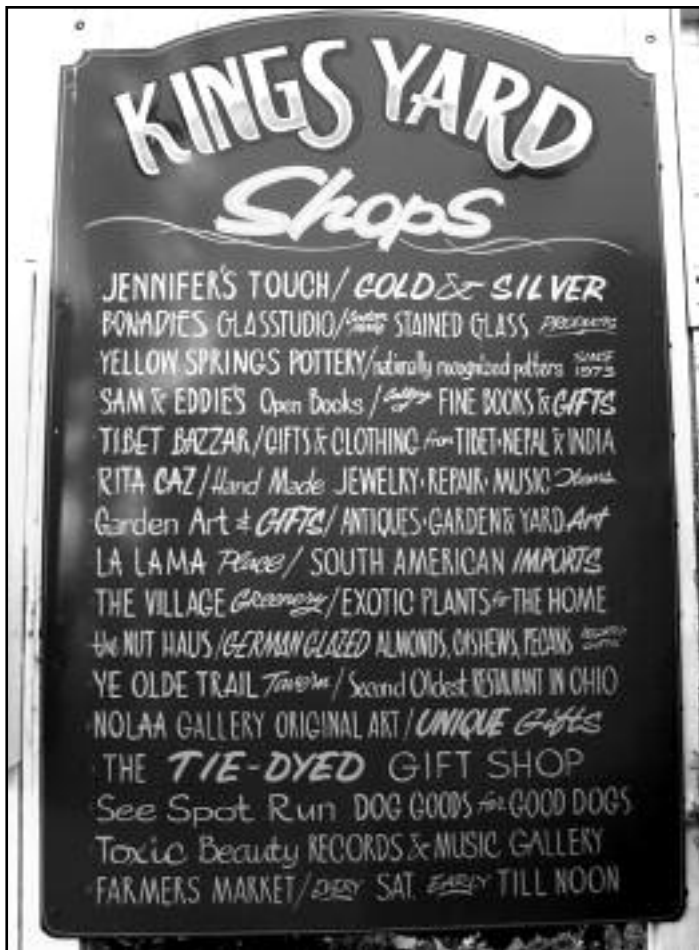 KINGS YARD
Shops
JENNIFER'S TOUCH / GOLD & SILVER
BONADIES GLASSTUDIO / STAINED GLASS PRODUCTS
YELLOW SPRINGS POTTERY / nationally recognized potters SINCE 1973
SAM & EDDIE'S Open Books / FINE BOOKS & GIFTS
TIBET BAZZAR / GIFTS & CLOTHING from TIBET·NEPAL & INDIA
RITA CAZ / Hand Made JEWELRY·REPAIR·MUSIC
Garden Art & GIFTS / ANTIQUES·GARDEN & YARD Art
LA LAMA Place / SOUTH AMERICAN IMPORTS
THE VILLAGE Greenery / EXOTIC PLANTS for THE HOME
the NUT HAUS / GERMAN GLAZED ALMONDS, CASHEWS, PECANS
YE OLDE TRAIL Tavern / Second Oldest RESTAURANT IN OHIO
NOLAA GALLERY ORIGINAL ART / UNIQUE Gifts
THE TIE-DYED GIFT SHOP
See Spot Run DOG GOODS for GOOD DOGS
Toxic Beauty RECORDS & MUSIC GALLERY
FARMERS MARKET / EVERY SAT. EARLY TILL NOON